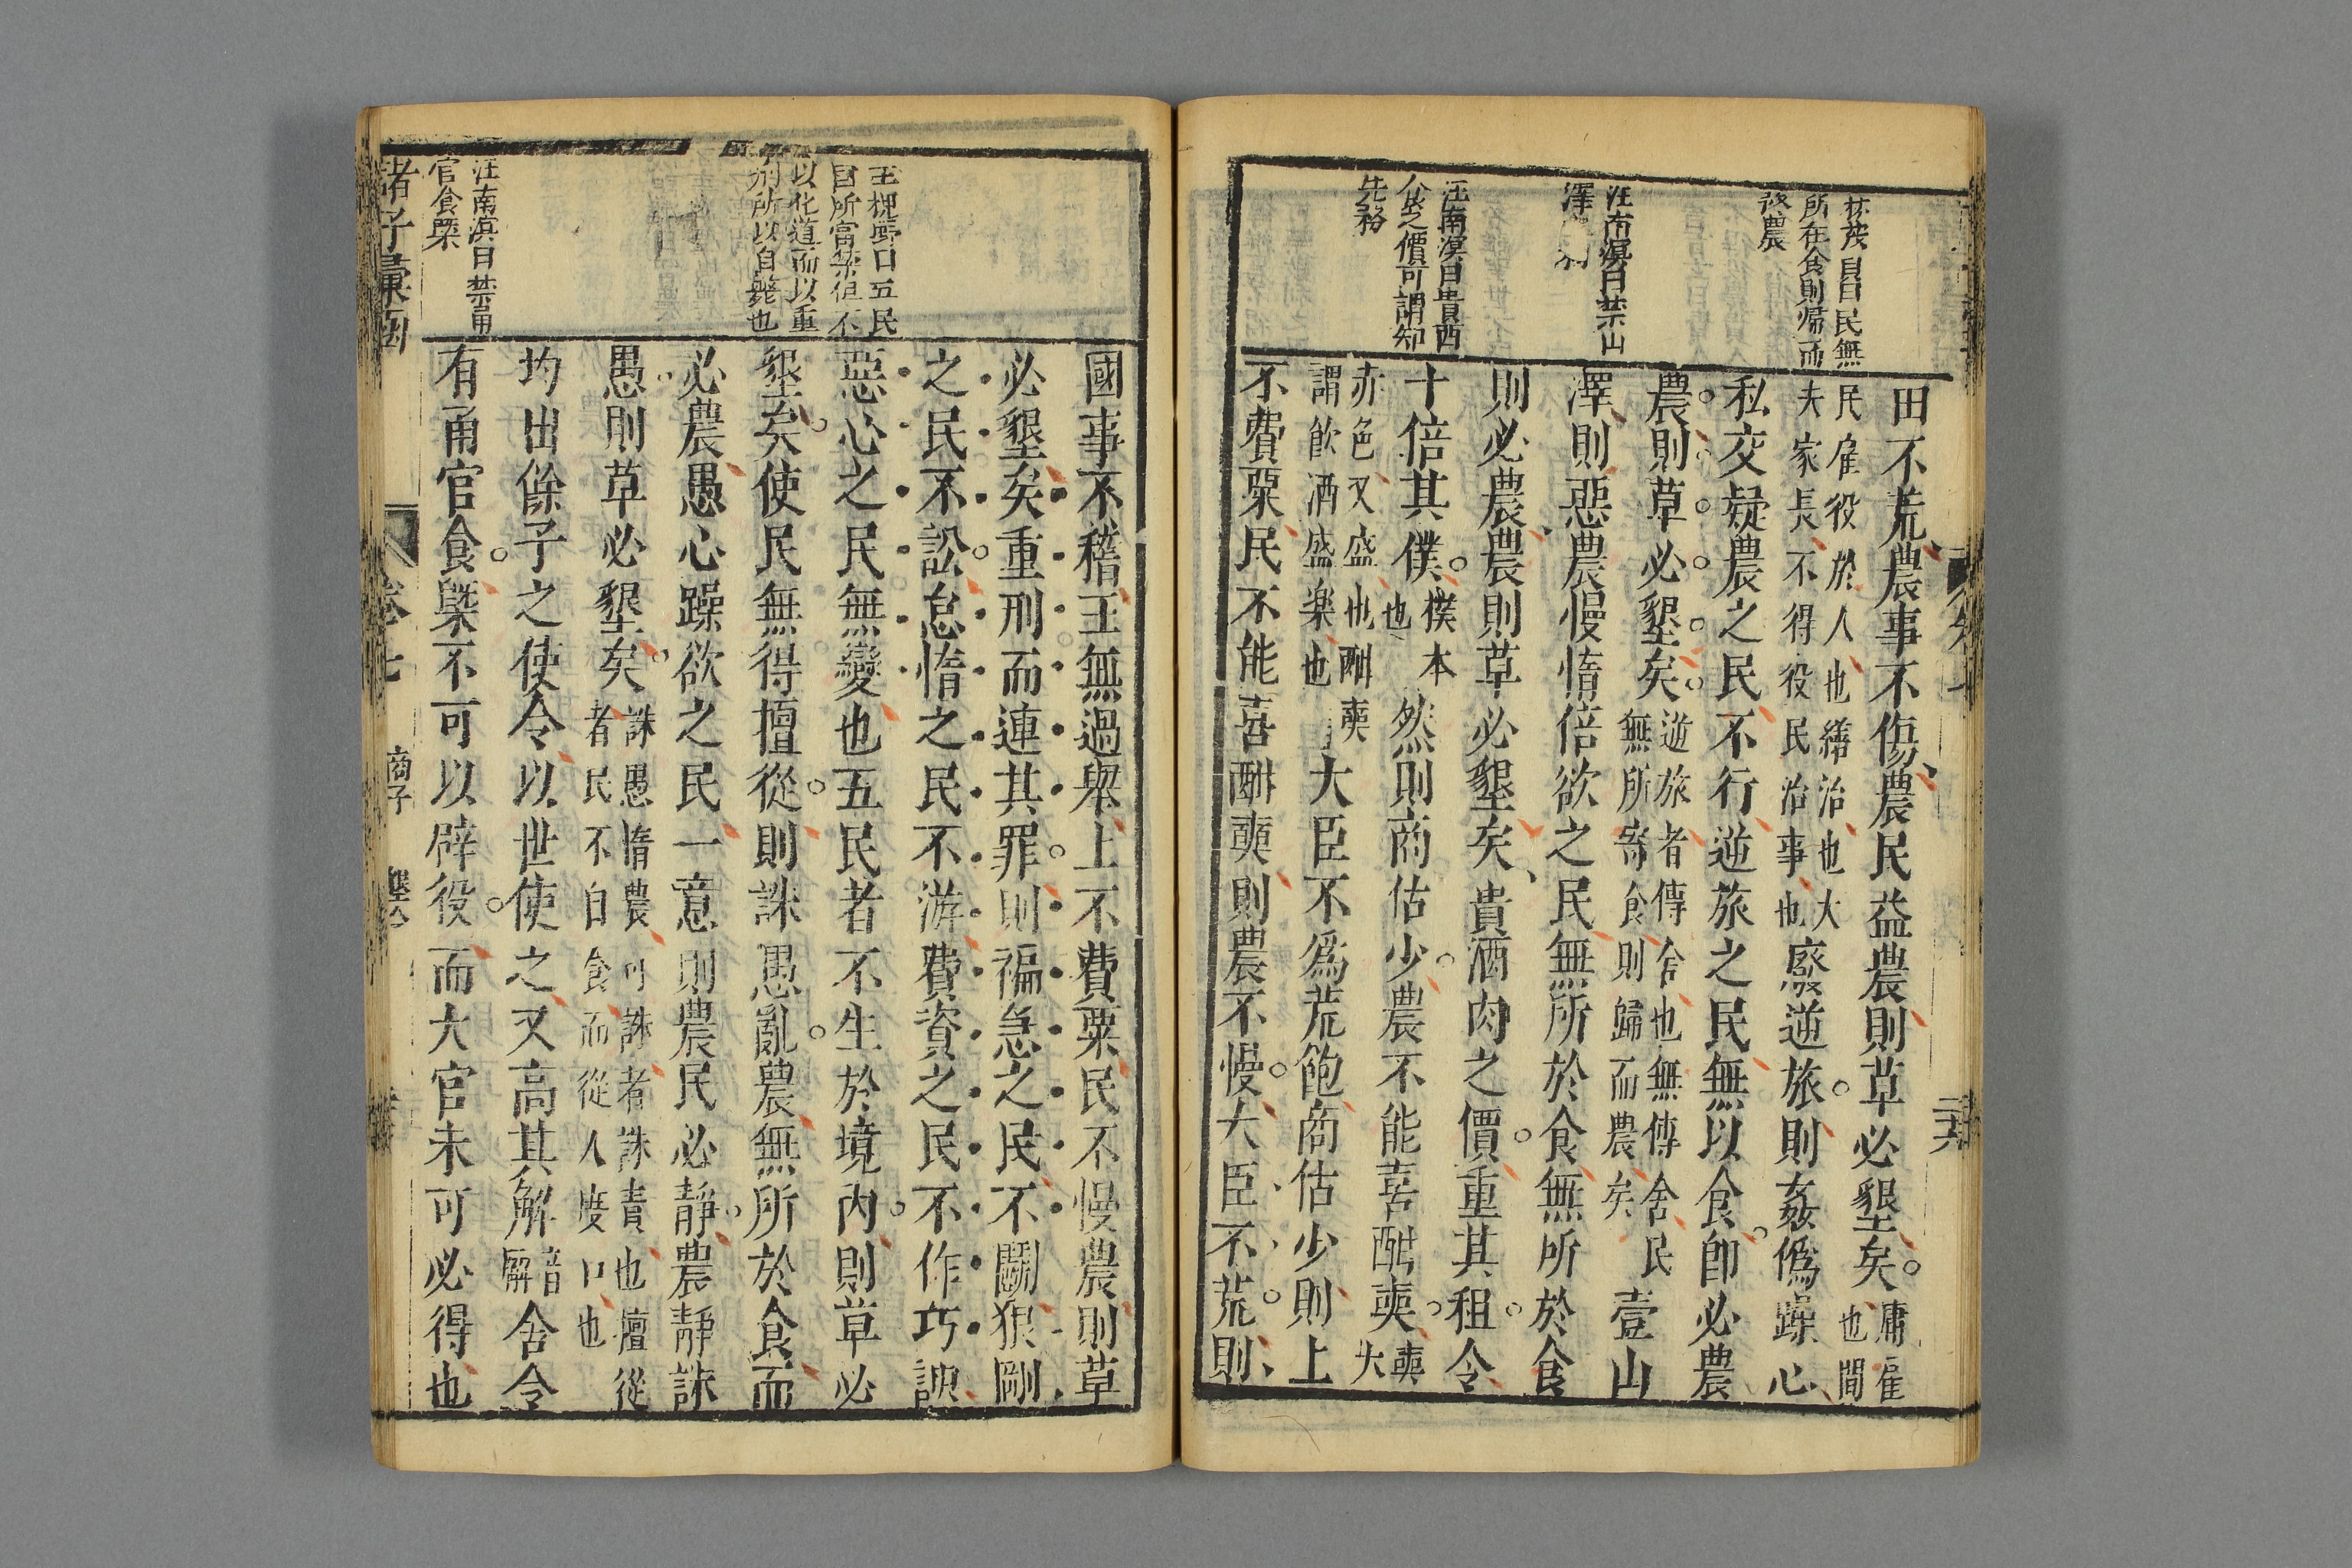 所在食則歸而
汪南溟曰禁山
汪南溟曰貴酒
食之價可謂知
先務
田不荒農事不傷農民益農則草必墾矣庸雇
也間
民雇役於人也繕治也大
夫家長不得役民治事也廢逆旅則姦僞躁心
私交疑農之民不行逆旅之民無以食卽必農
農則草必墾矣逆旅者傳舍也無傳舍民
無所寄食則歸而農矣壹山
澤則惡農慢惰倍欲之民無所於食無所於食
則必農農則草必墾矣貴酒肉之價重其租令
十倍其僕樸本
也然則商估少農不能喜酣奭奭大
赤色又盛也酣奭
謂飮酒盛樂也大臣不爲荒飽商估少則上
不費粟民不能喜酣奭則農不慢大臣不荒則
王
曰五民
以化道而以重
刑所以自斃也
汪南溟曰禁甬
官食槩
國事不稽王無過舉上不費粟民不慢農則草
必墾矣重刑而連其罪則褊急之民不鬭狠剛
之民不訟怠惰之民不游費資之民不作巧諛
惡心之民無變也五民者不生於境內則草必
墾矣使民無得擅從則誅愚亂農無所於食而
必農愚心躁欲之民一意則農民必靜農靜誅
愚則草必墾矣誅愚惰農可誅者誅責也擅從
者民不自食而從人度口也
均出餘子之使令以世使之又高其解音
廨舍令
有甬官食槩不可以辟役而大官未可必得也
諸子彙函
卷七
商子
墾令